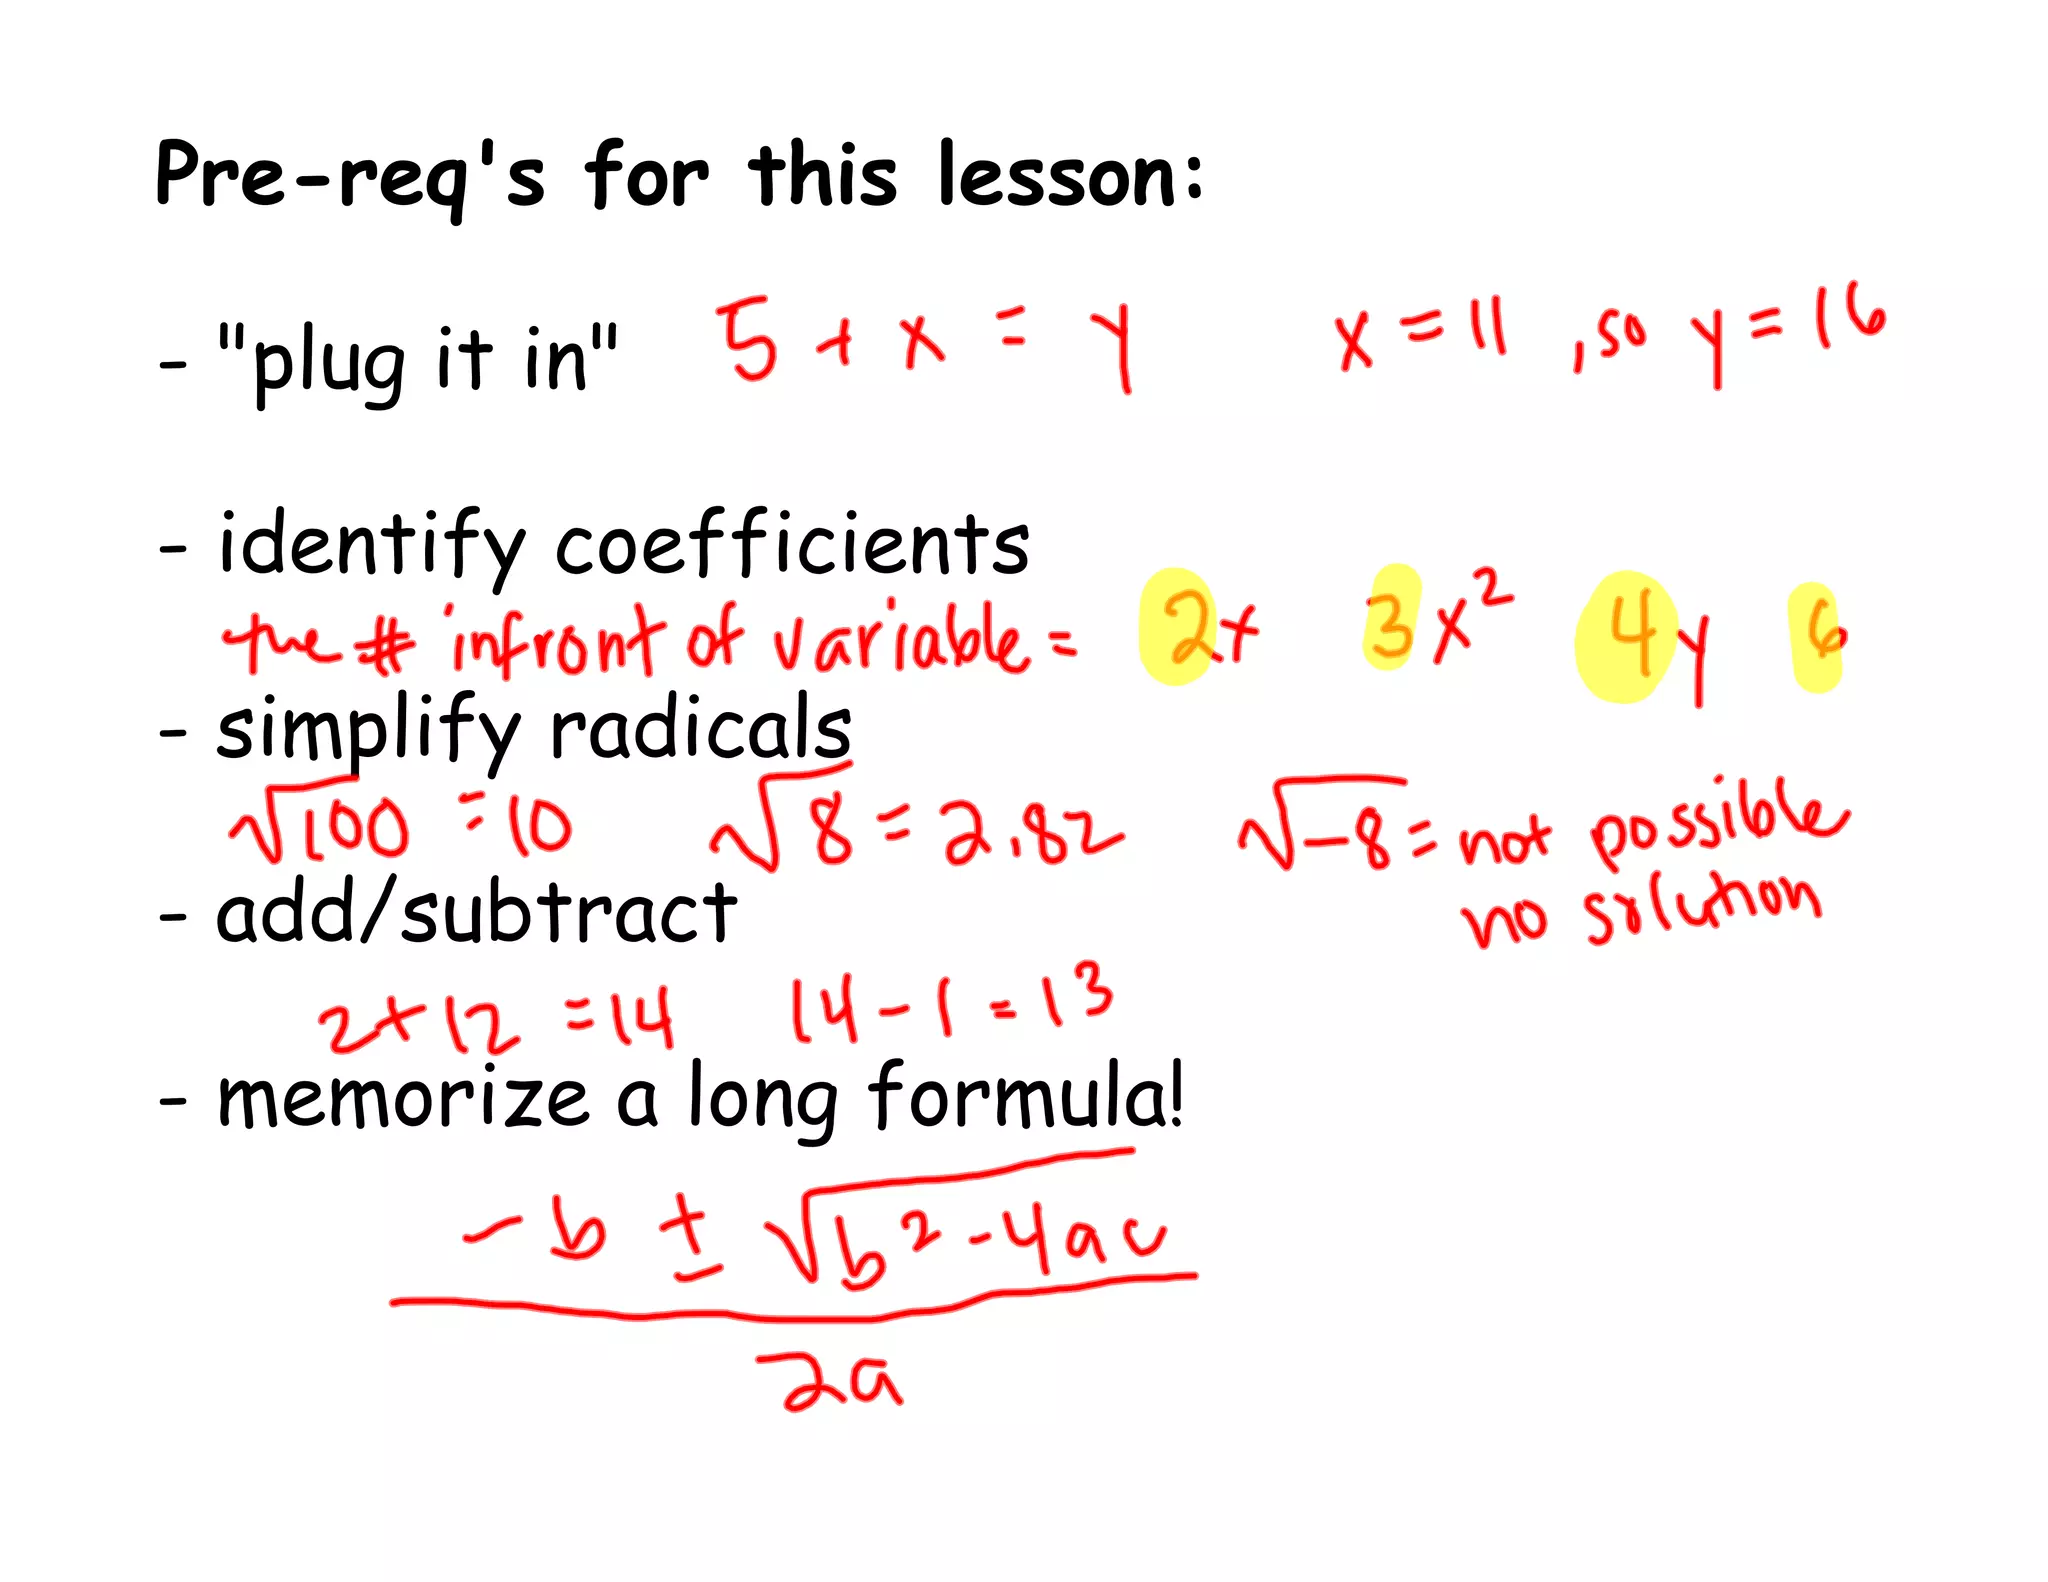 Pre-req's for this lesson:
- "plug it in" 5 + x = y x = 11 , so y = 16
- identify coefficients
the # infront of variable = 2x 3x² 4y 6
- simplify radicals
√100 = 10 √8 = 2.82 √-8 = not possible
no solution
- add/subtract
2+12 = 14 14 - 1 = 13
- memorize a long formula!
-b ± √b²-4ac
2a